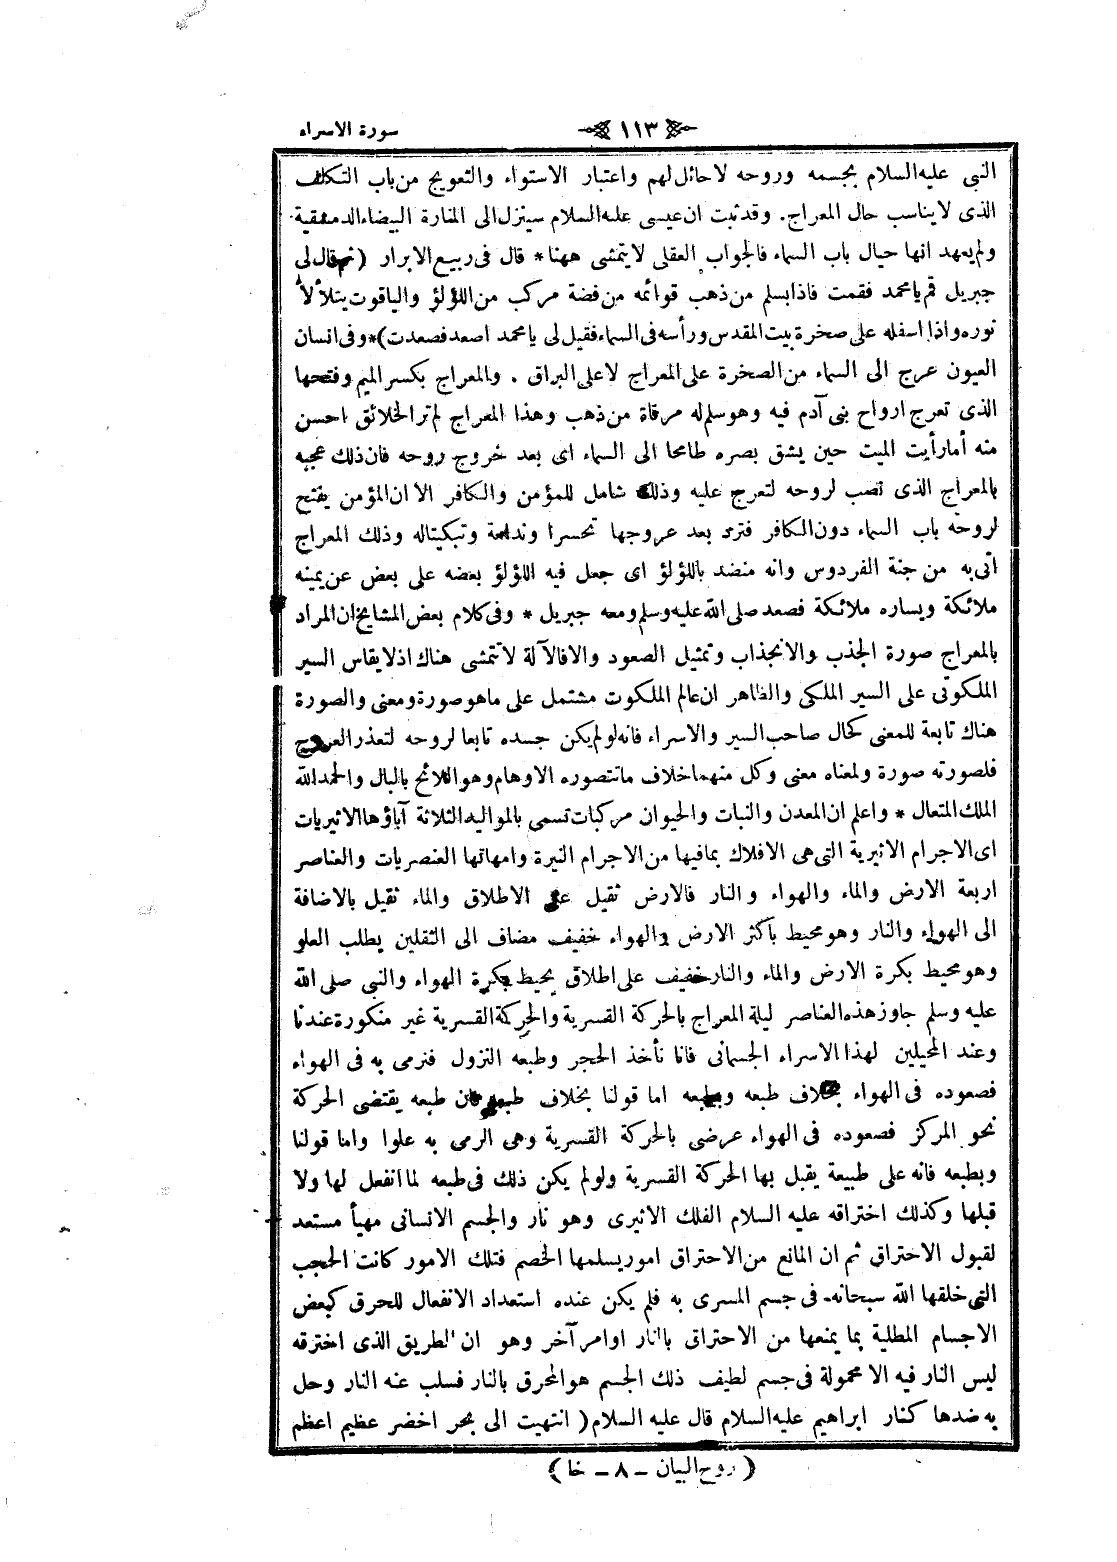 سورة الاسراء
١١٣
النبى عليه السلام بجسمه وروحه لا حائل لهم واعتبار الاستواء والتعويج من باب التكلف
الذى لا يناسب حال المعراج. وقد ثبت ان عيسى عليه السلام سينزل الى المنارة البيضاء الدمشقية
ولم يعهد انها حيال باب السماء فالجواب العقلى لا يتمشى ههنا * قال فى ربيع الابرار (ثم قال لى
جبريل قم يا محمد فقمت فاذا بسلم من ذهب قوائمه من فضة مركب من اللؤلؤ والياقوت يتلألأ
نوره واذا اسفله على صخرة بيت المقدس ورأسه فى السماء فقيل لى يا محمد اصعد فصعدت) * وفى انسان
العيون عرج الى السماء من الصخرة على المعراج لا على البراق . والمعراج بكسر الميم وفتحها
الذى تعرج ارواح بنى آدم فيه وهو سلم له مرقاة من ذهب وهذا المعراج لم تر الخلائق احسن
منه أما رأيت الميت حين يشق بصره طامحا الى السماء اى بعد خروج روحه فان ذلك عجبه
بالمعراج الذى نصب لروحه لتعرج عليه وذلك شامل للمؤمن والكافر الا ان المؤمن يفتح
لروحه باب السماء دون الكافر فترد بعد عروجها تحسرا وندامة وتبكيتا له وذلك المعراج
اتى به من جنة الفردوس وانه منضد باللؤلؤ اى جعل فيه اللؤلؤ بعضه على بعض عن يمينه
ملائكة ويساره ملائكة فصعد صلى الله عليه وسلم ومعه جبريل * وفى كلام بعض المشايخ ان المراد
بالمعراج صورة الجذب والانجذاب وتمثيل الصعود والا فالآلة لا تتمشى هناك اذ لا يقاس السير
الملكوتى على السير الملكى والظاهر ان عالم الملكوت مشتمل على ما هو صورة ومعنى والصورة
هناك تابعة للمعنى كحال صاحب السير والاسراء فانه لو لم يكن جسده تابعا لروحه لتعذر العروج
فلصورته صورة ولمعناه معنى وكل منهما خلاف ما تتصوره الاوهام وهو اللائح بالبال والحمد لله
الملك المتعال * واعلم ان المعدن والنبات والحيوان مركبات تسمى بالمواليد الثلاثة آباؤها الاثيريات
اى الاجرام الاثيرية التى هى الافلاك بما فيها من الاجرام النيرة وامهاتها العنصريات والعناصر
اربعة الارض والماء والهواء والنار فالارض ثقيل على الاطلاق والماء ثقيل بالاضافة
الى الهواء والنار وهو محيط باكثر الارض والهواء خفيف مضاف الى الثقلين يطلب العلو
وهو محيط بكرة الارض والماء والنار خفيف على اطلاق يحيط بكرة الهواء والنبى صلى الله
عليه وسلم جاوز هذه العناصر ليلة المعراج بالحركة القسرية والحركة القسرية غير منكورة عندنا
وعند المحيلين لهذا الاسراء الجسمانى فانا نأخذ الحجر وطبعه النزول فنرمى به فى الهواء
فصعوده فى الهواء بخلاف طبعه وبطبعه اما قولنا بخلاف طبعه فان طبعه يقتضى الحركة
نحو المركز فصعوده فى الهواء عرضى بالحركة القسرية وهى الرمى به علوا واما قولنا
وبطبعه فانه على طبيعة يقبل بها الحركة القسرية ولو لم يكن ذلك فى طبعه لما انفعل لها ولا
قبلها وكذلك اختراقه عليه السلام الفلك الاثيرى وهو نار والجسم الانسانى مهيأ مستعد
لقبول الاحتراق ثم ان المانع من الاحتراق امور يسلمها الخصم فتلك الامور كانت الحجب
التى خلقها الله سبحانه فى جسم المسرى به فلم يكن عنده استعداد الانفعال للحرق كبعض
الاجسام المطلية بما يمنعها من الاحتراق بالنار او امر آخر وهو ان الطريق الذى اخترقه
ليس النار فيه الا محمولة فى جسم لطيف ذلك الجسم هو المحرق بالنار فسلب عنه النار وحل
به ضدها كنار ابراهيم عليه السلام قال عليه السلام (انتهيت الى بحر اخضر عظيم اعظم
(روح البيان - ٨ - خا)